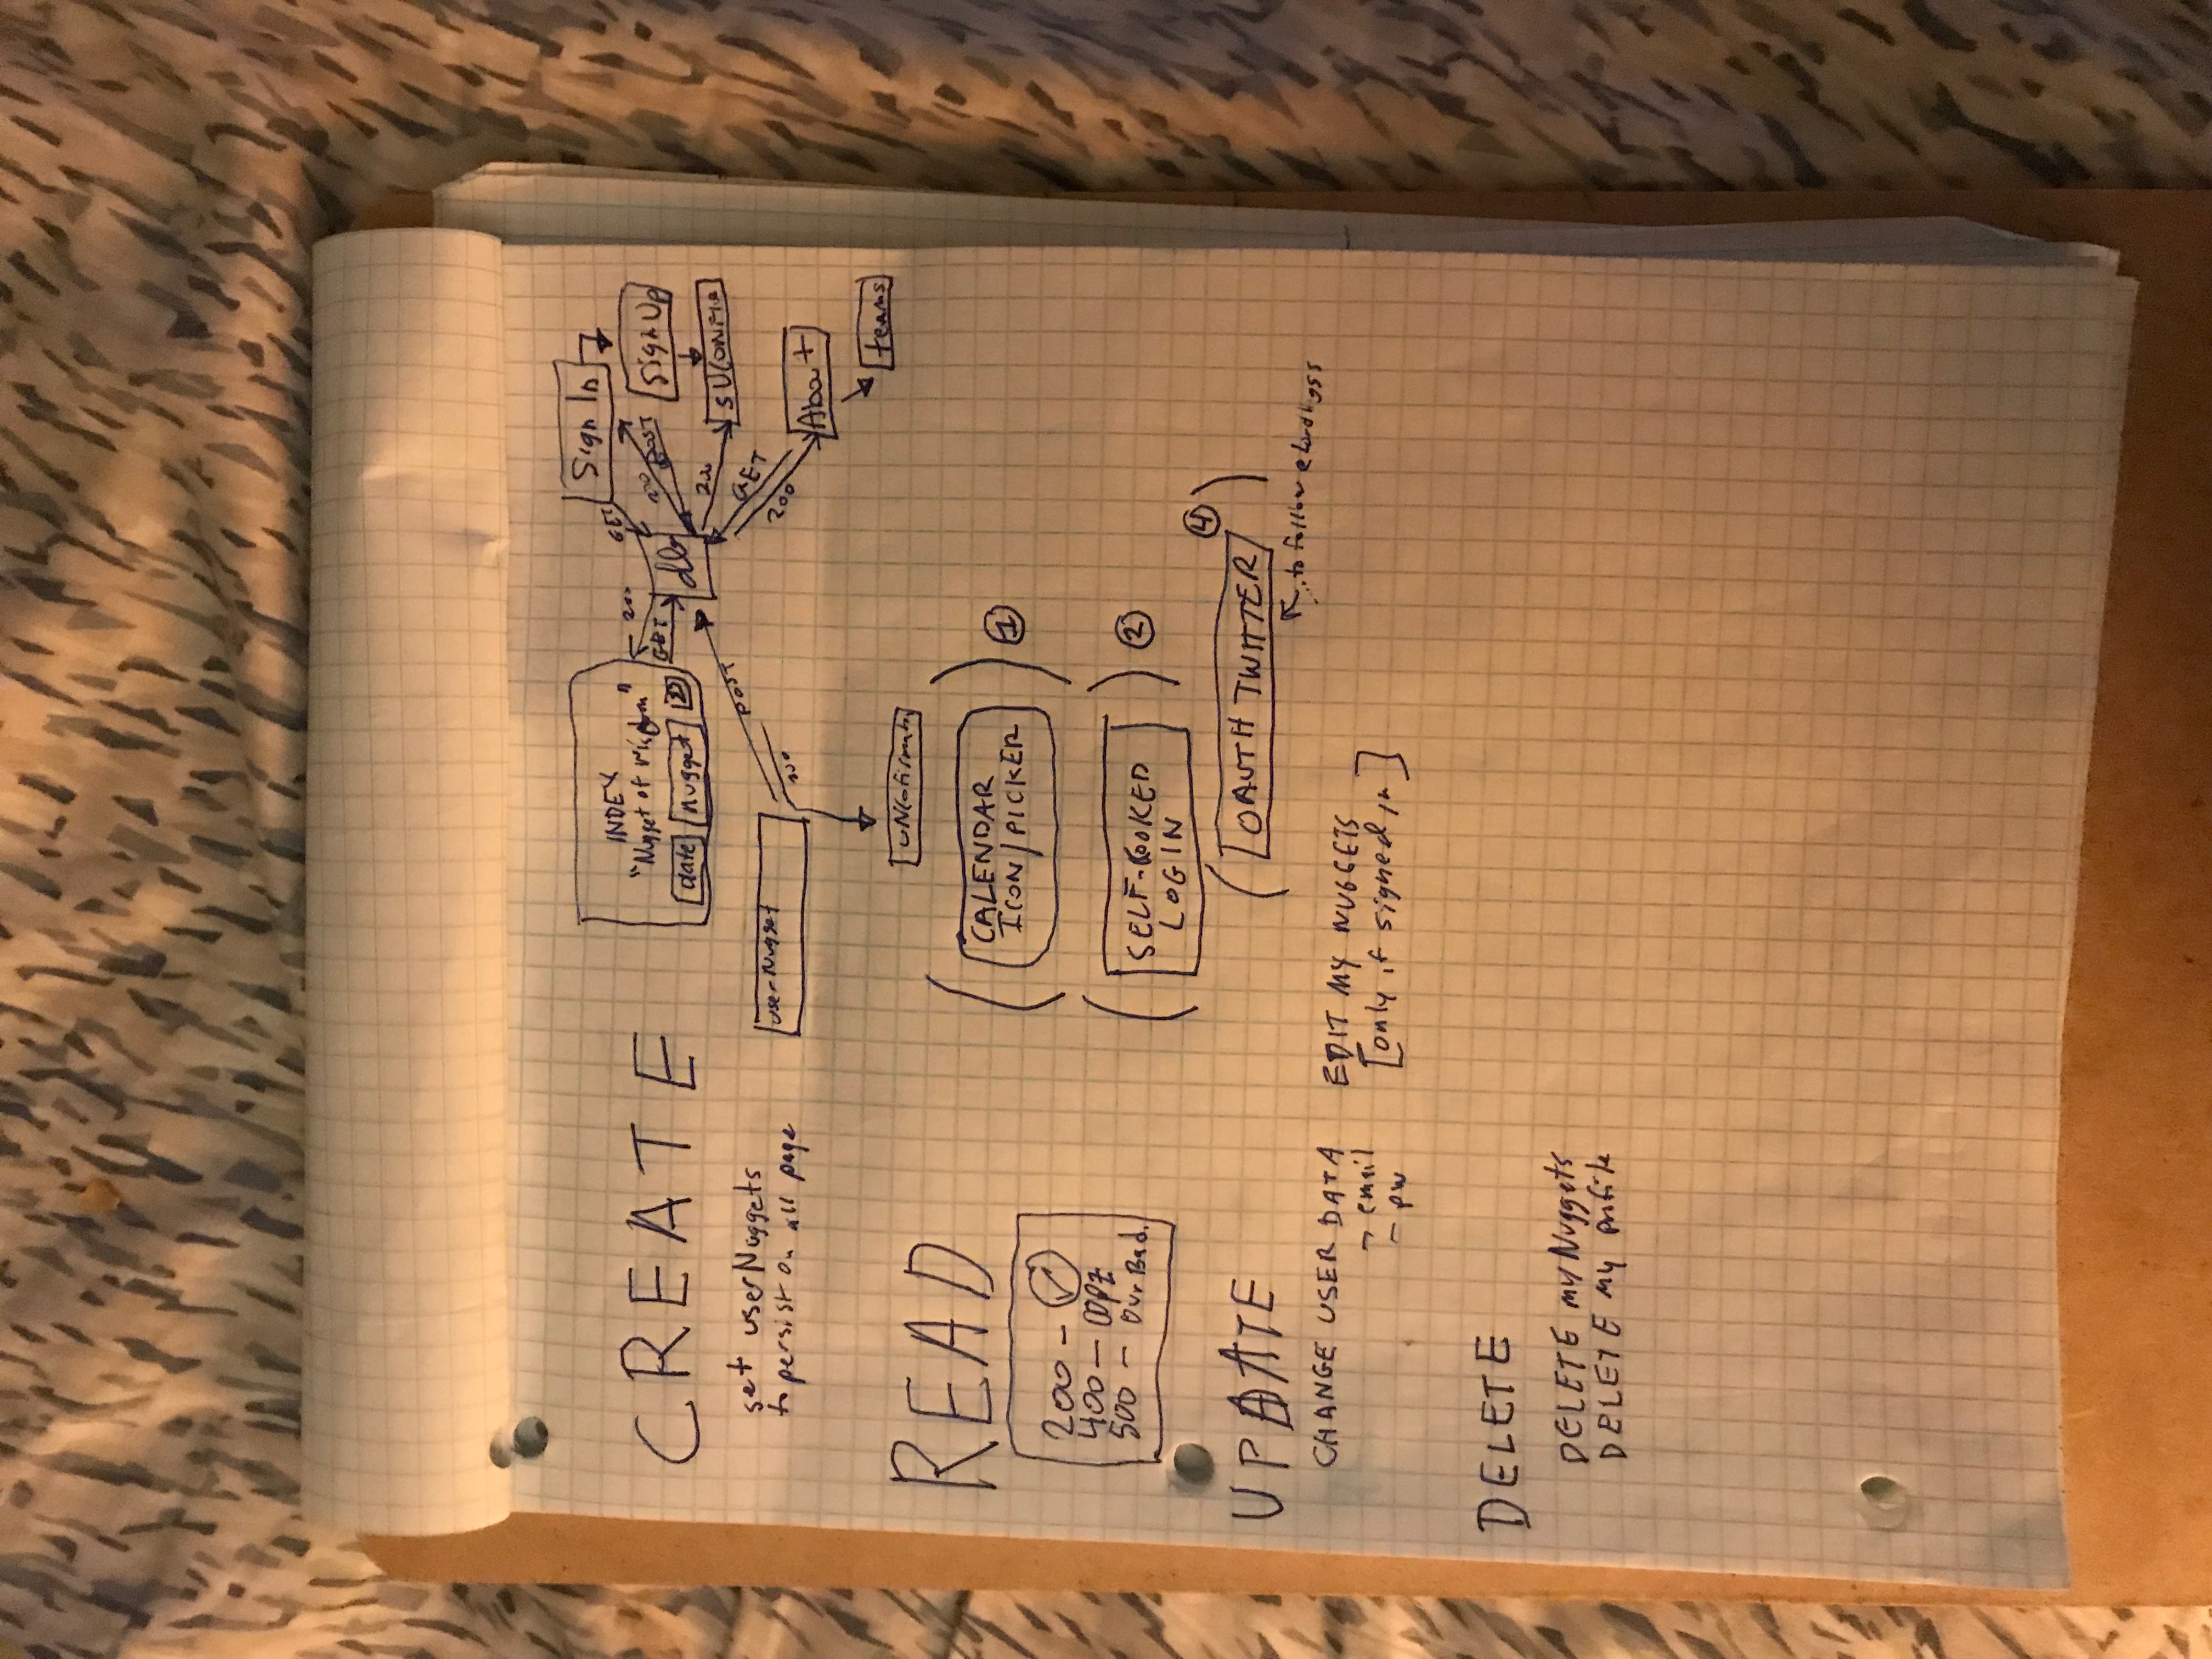 CREATE
set userNuggets
to persist on all page
INDEX
"Nugget of wisdom"
date nugget
200
GET
db
GET
Sign In
Sign Up
POST
200
SUConfir
GET
200
About
teams
userNugget
POST
200
READ
200 -
400 - OOPZ
500 - Our Bad.
CALENDAR
ICON/PICKER
1
SELF-COOKED
LOGIN
2
4
OAUTH TWITTER
to follow
UPDATE
CHANGE USER DATA
- email
- pw
EDIT MY NUGGETS
[only if signed in]
DELETE
DELETE my Nuggets
DELETE my profile